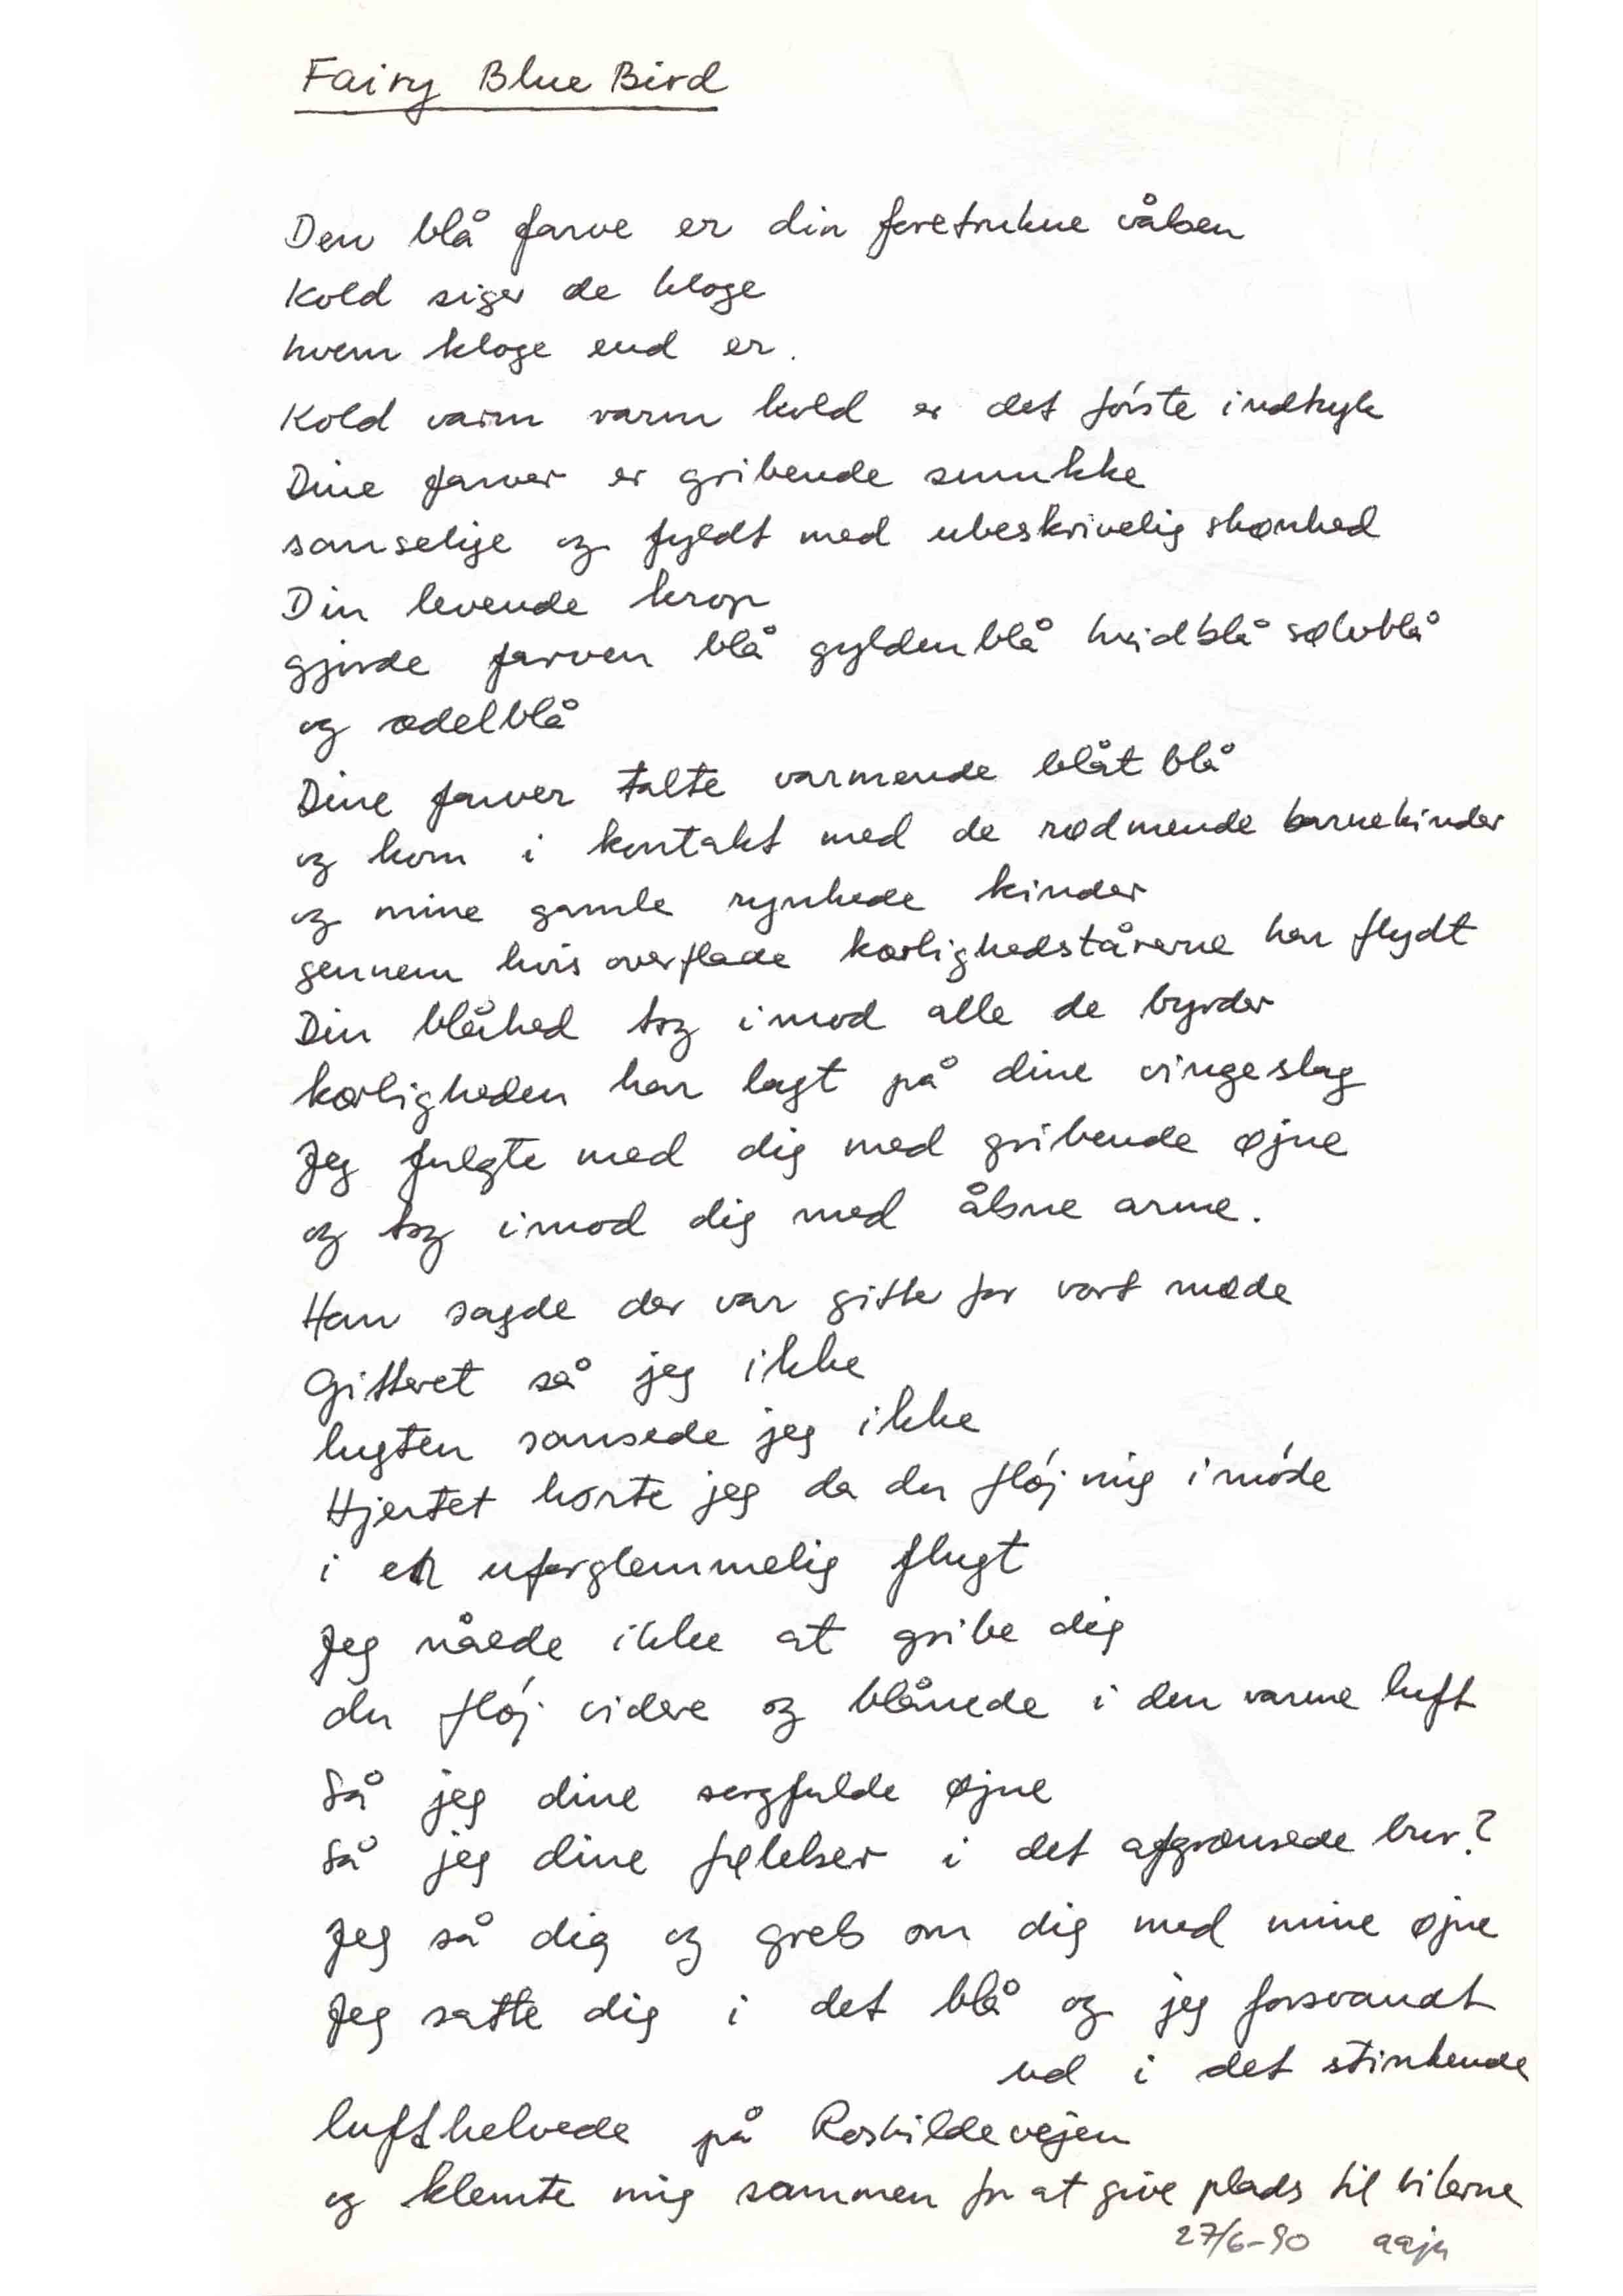 Fairy Blue Bird
Den blå farve er din foretrukne våben
Kold siger de kloge
hvem kloge end er.
Kold varm varm kold er det første indtryk
Dine farver er gribende smukke
sanselige og fyldt med ubeskrivelig skønhed
Din levende krop
gjorde farven blå gyldenblå hvidblå sølvblå
og ædelblå
Dine farver talte varmende blåt blå
og kom i kontakt med de rødmende barnekinder
og mine gamle rynkede kinder
gennem hvis overflade kærlighedstårerne har flydt
Din blåhed tog imod alle de byrder
kærligheden har lagt på dine vingeslag
Jeg fulgte med dig med gribende øjne
og tog imod dig med åbne arme.
Han sagde der var gitter for vort møde
Gitteret så jeg ikke
lugten sansede jeg ikke
Hjertet hørte jeg da du fløj mig i møde
i en uforglemmelig flugt
Jeg nåede ikke at gribe dig
du fløj videre og blånede i den varme luft
Så jeg dine sorgfulde øjne
Så jeg dine følelser i det afgrænsede bur?
Jeg så dig og greb om dig med mine øjne
Jeg satte dig i det blå og jeg forsvandt
ud i det stinkende
lufthelvede på Roskildevejen
og klemte mig sammen for at give plads til bilerne
27/6-90